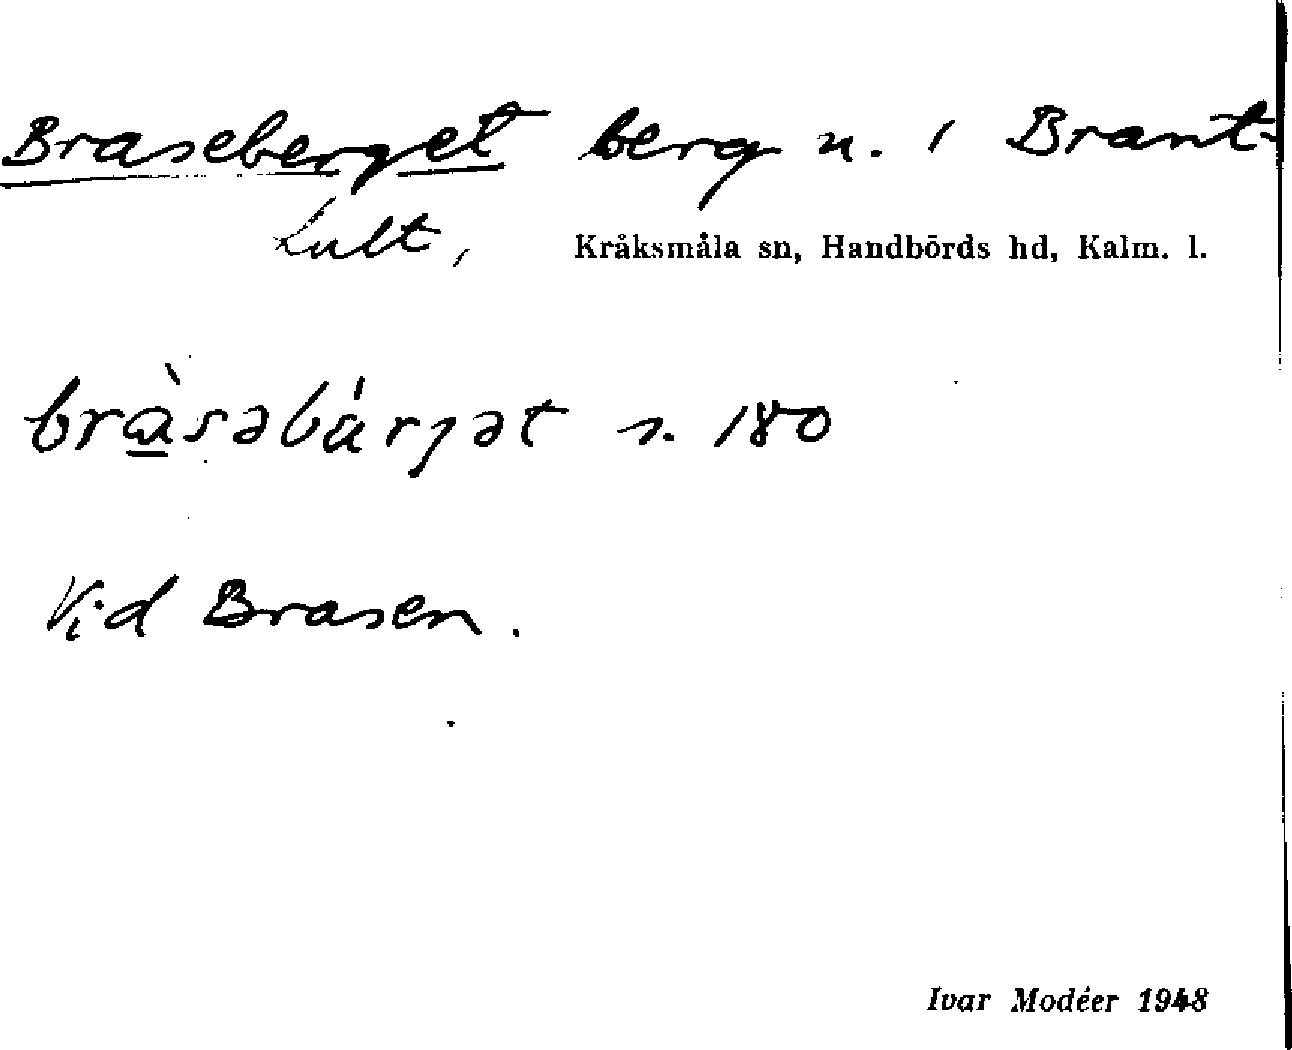 Braseberget berg n. i Brant-
hult,
Kråksmåla sn, Handbörds hd, Kalm. l.
s. 180
Vid Brasen.
Ivar Modéer 1948